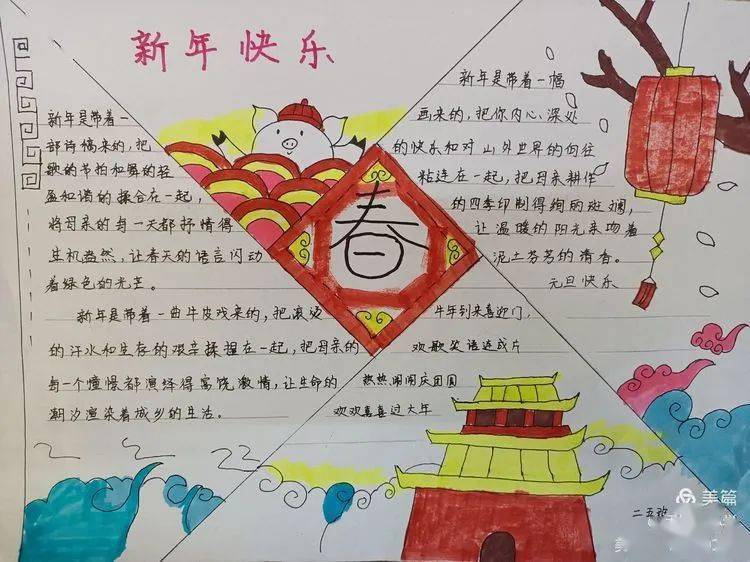 新年快乐
新年是带着一
部诗稿来的，把
歌的节拍和舞的轻
盈和谐的揉合在一起，
将母亲的每一天都抒情得
生机盎然，让春天的语言闪动
着绿色的光芒。
新年是带着一曲牛皮戏来的，把滚烫
的汗水和生存的艰辛揉捏在一起，把母亲的
每一个憧憬都演绎得富饶激情，让生命的
潮汐渲染着城乡的生活。
春
新年是带着一幅
画来的，把你内心深处
的快乐和对山外世界的向往
粘连在一起，把母亲耕作
的四季印制得绚丽斑斓，
让温暖的阳光来吻着
泥土芬芳的清香。
元旦快乐
牛年到来喜迎门，
欢歌笑语连成片
热热闹闹庆团圆
欢欢喜喜过大年
二五班
美篇